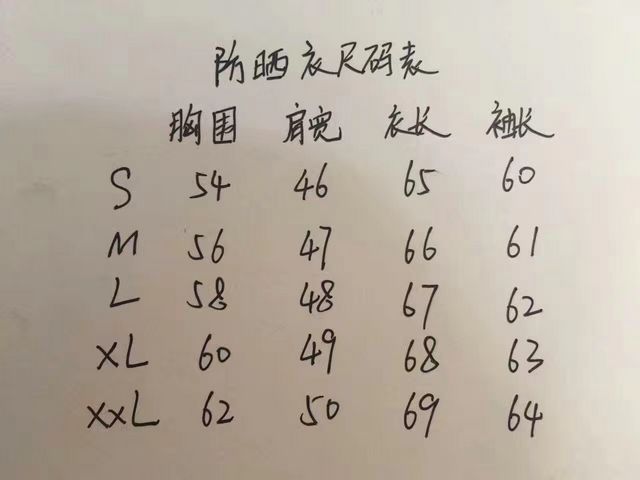 防晒衣尺码表
胸围 肩宽 衣长 袖长
S 54 46 65 60
M 56 47 66 61
L 58 48 67 62
XL 60 49 68 63
XXL 62 50 69 64